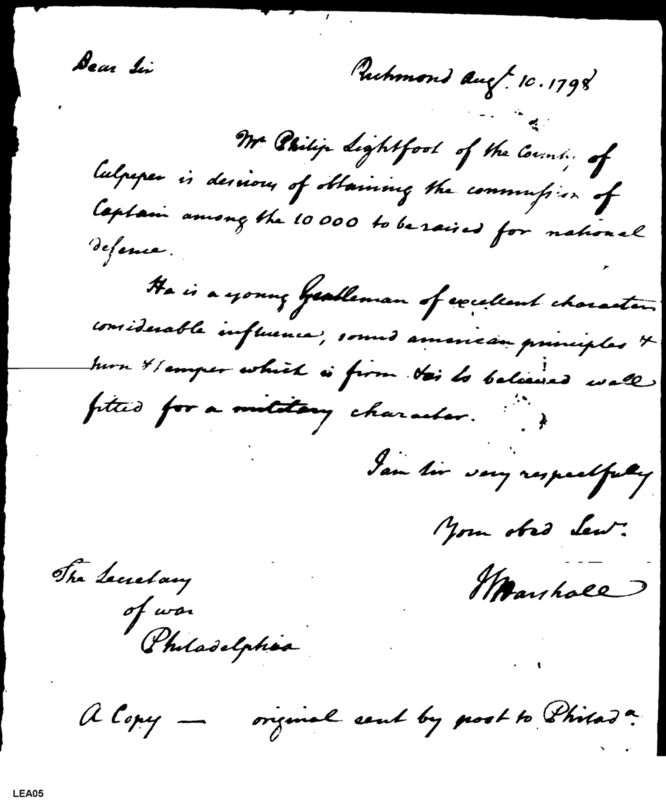 Dear Sir Richmond Augt. 10. 1798
Mr. Philip Lightfoot of the County of
Culpeper is desirous of obtaining the commission of
Captain among the 10000 to be raised for national
defence.
He is a young Gentleman of excellent character
considerable influence, sound american principles &
turn & temper which is firm & is to believed well
fitted for a military character.
I am Sir very respectfully
Your obed Servt.
J Marshall
The Secretary
of war
Philadelphia
A Copy — original sent by post to Philada.
LEA05